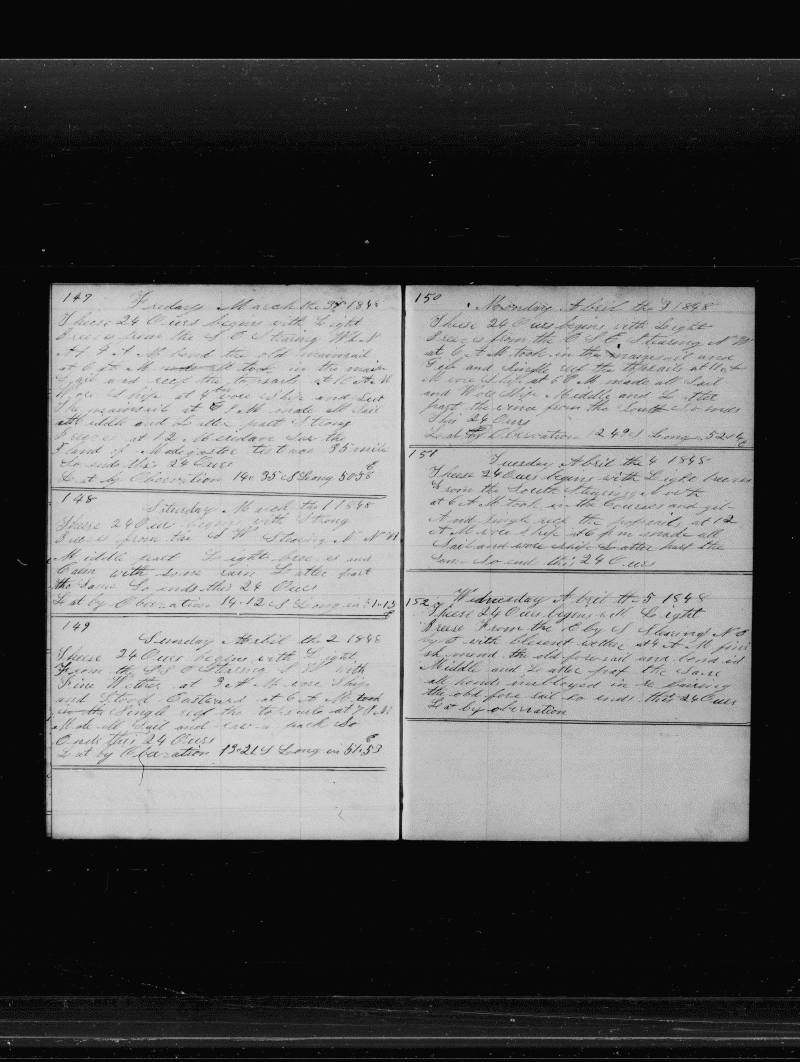 147 Friday March the 31 1848
These 24 Ours begins with Light
Breezes from the S E Staring W by N
At 7 A M bend the old mainsail
at 6 P M took in the main
and reef the topsails at 10 A M
Wore Ship at 4 wore Ship and Set
the mainsail at 6 P M made all Sail
Middle and Latter part Strong
Breezes at 12 Meridian Saw the
Island of Madigaster distance 35 mile
So ends this 24 Ours
Lat by Obsevation 14-35 S Long 50 56 E
148
Saturday March the 1 1848
These 24 Ours begins with Strong
Breezes from the S W Staring N N W
Middle part Light breezes and
Calm with some rain Latter part
the Same So ends this 24 Ours
Lat by Obseration 14-12 S Long in 51-13 E
149
Sunday Abril the 2 1848
These 24 Ours begins with Light
From the S S E Staring S W with
Fine Wether at 9 A M wore Ship
and Stood Eastward at 6 A M took
in the Single reef the topsails at 7 P M
Made all Sail and tack So
Ends this 24 Ours
Lat by Obseration 13-21 S Long in 51-53 E
150
Monday Abril the 3 1848
These 24 Ours begins with Light
Breezes from the E S E Staring N W
at 6 A M took in the mainsail and
Geb and Single reef the topsails at 11
M wore Ship at 6 P M made all Sail
and Wore Ship Middle and Latter
part the wind from the South So ends
This 24 Ours
Lat by Obervation 12 49 S Long 52-14 E
151
Tuesday Abril the 4 1848
These 24 Ours begins with Light breezes
From the South Staring North
at 6 A M took in the Courses and geb
And Single reef the topsails at 12
A M wore Ship at 6 P M made all
Sail and wore Ship Latter part the
Same So end this 24 Ours
152
Wednesday Abril th 5 1848
These 24 Ours begins with Light
Breese From the E by S Staring N E
by E with blesend wether at 4 A M finis
sh mend the old fore sail and bend it
Middle and Latter part the Same
all hands imbloyed in re pairing
the old fore sail So ends this 24 Ours
Lat by obervation